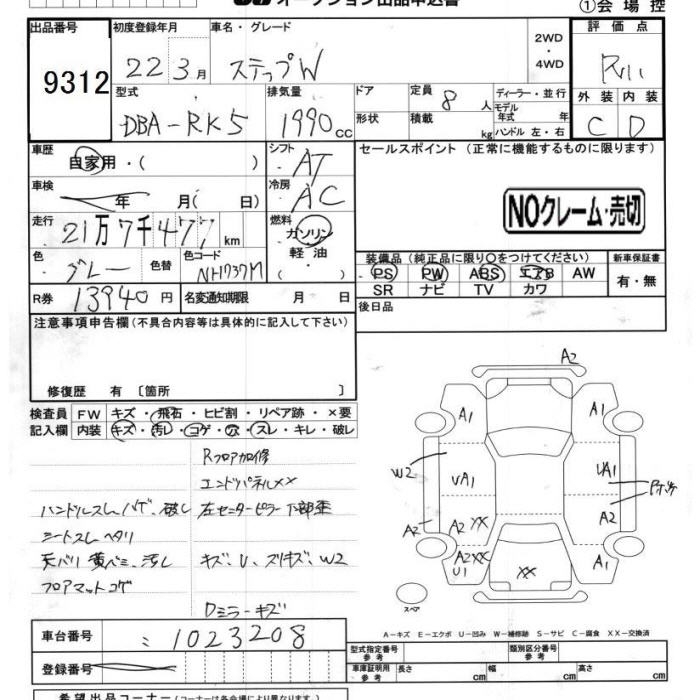 オークション出品申込書
①会場控
出品番号 初度登録年月 車名・グレード 評価点
9312
22 3月 ステップW 2WD ・4WD R11
型式 排気量 ドア 定員 8人 ディーラー・並行 外装 内装
DBA-RK5 1990cc 形状 積載 kg モデル年式 年 ハンドル 左・右 C D
車歴 自家用・( ) シフト AT
セールスポイント(正常に機能するものに限ります)
車検 年 月( 日) 冷房 AC
NOクレーム・売切
走行 21万7千477km 燃料 ガソリン 軽油
色 グレー 色替 色コード NH737M
装備品(純正品に限り○をつけてください) 新車保証書
PS PW ABS エアB AW 有・無
SR ナビ TV カワ
R券 13940円 名変通知期限 月 日
後日品
注意事項申告欄(不具合内容等は具体的に記入して下さい)
修復歴 有〔箇所 〕
検査員 FW キズ・飛石・ヒビ割・リペア跡・×要
記入欄 内装 キズ・汚れ・コゲ・穴・スレ・キレ・破レ
Rフロア加修
エンドパネルXX
ハンドルスレハゲ、破レ 左センターピラー下部歪
シートスレヘタリ
天バリ黄ベミ、汚レ キズ、U、スリキズ、W2
フロアマットコゲ
Dミラーキズ
A2
A1 A1
W2 UA1 UA1
A2 A2XX A2
A2XX U1 XX A1
スペア
A-キズ E-エクボ U-凹み W-補修跡 S-サビ C-腐食 XX-交換済
車台番号 1023208
登録番号
型式指定番号 参考 類別区分番号 参考
車庫証明用 参考 長さ cm 幅 cm 高さ cm
希望出品コーナー(コーナーは各会場により異なります)